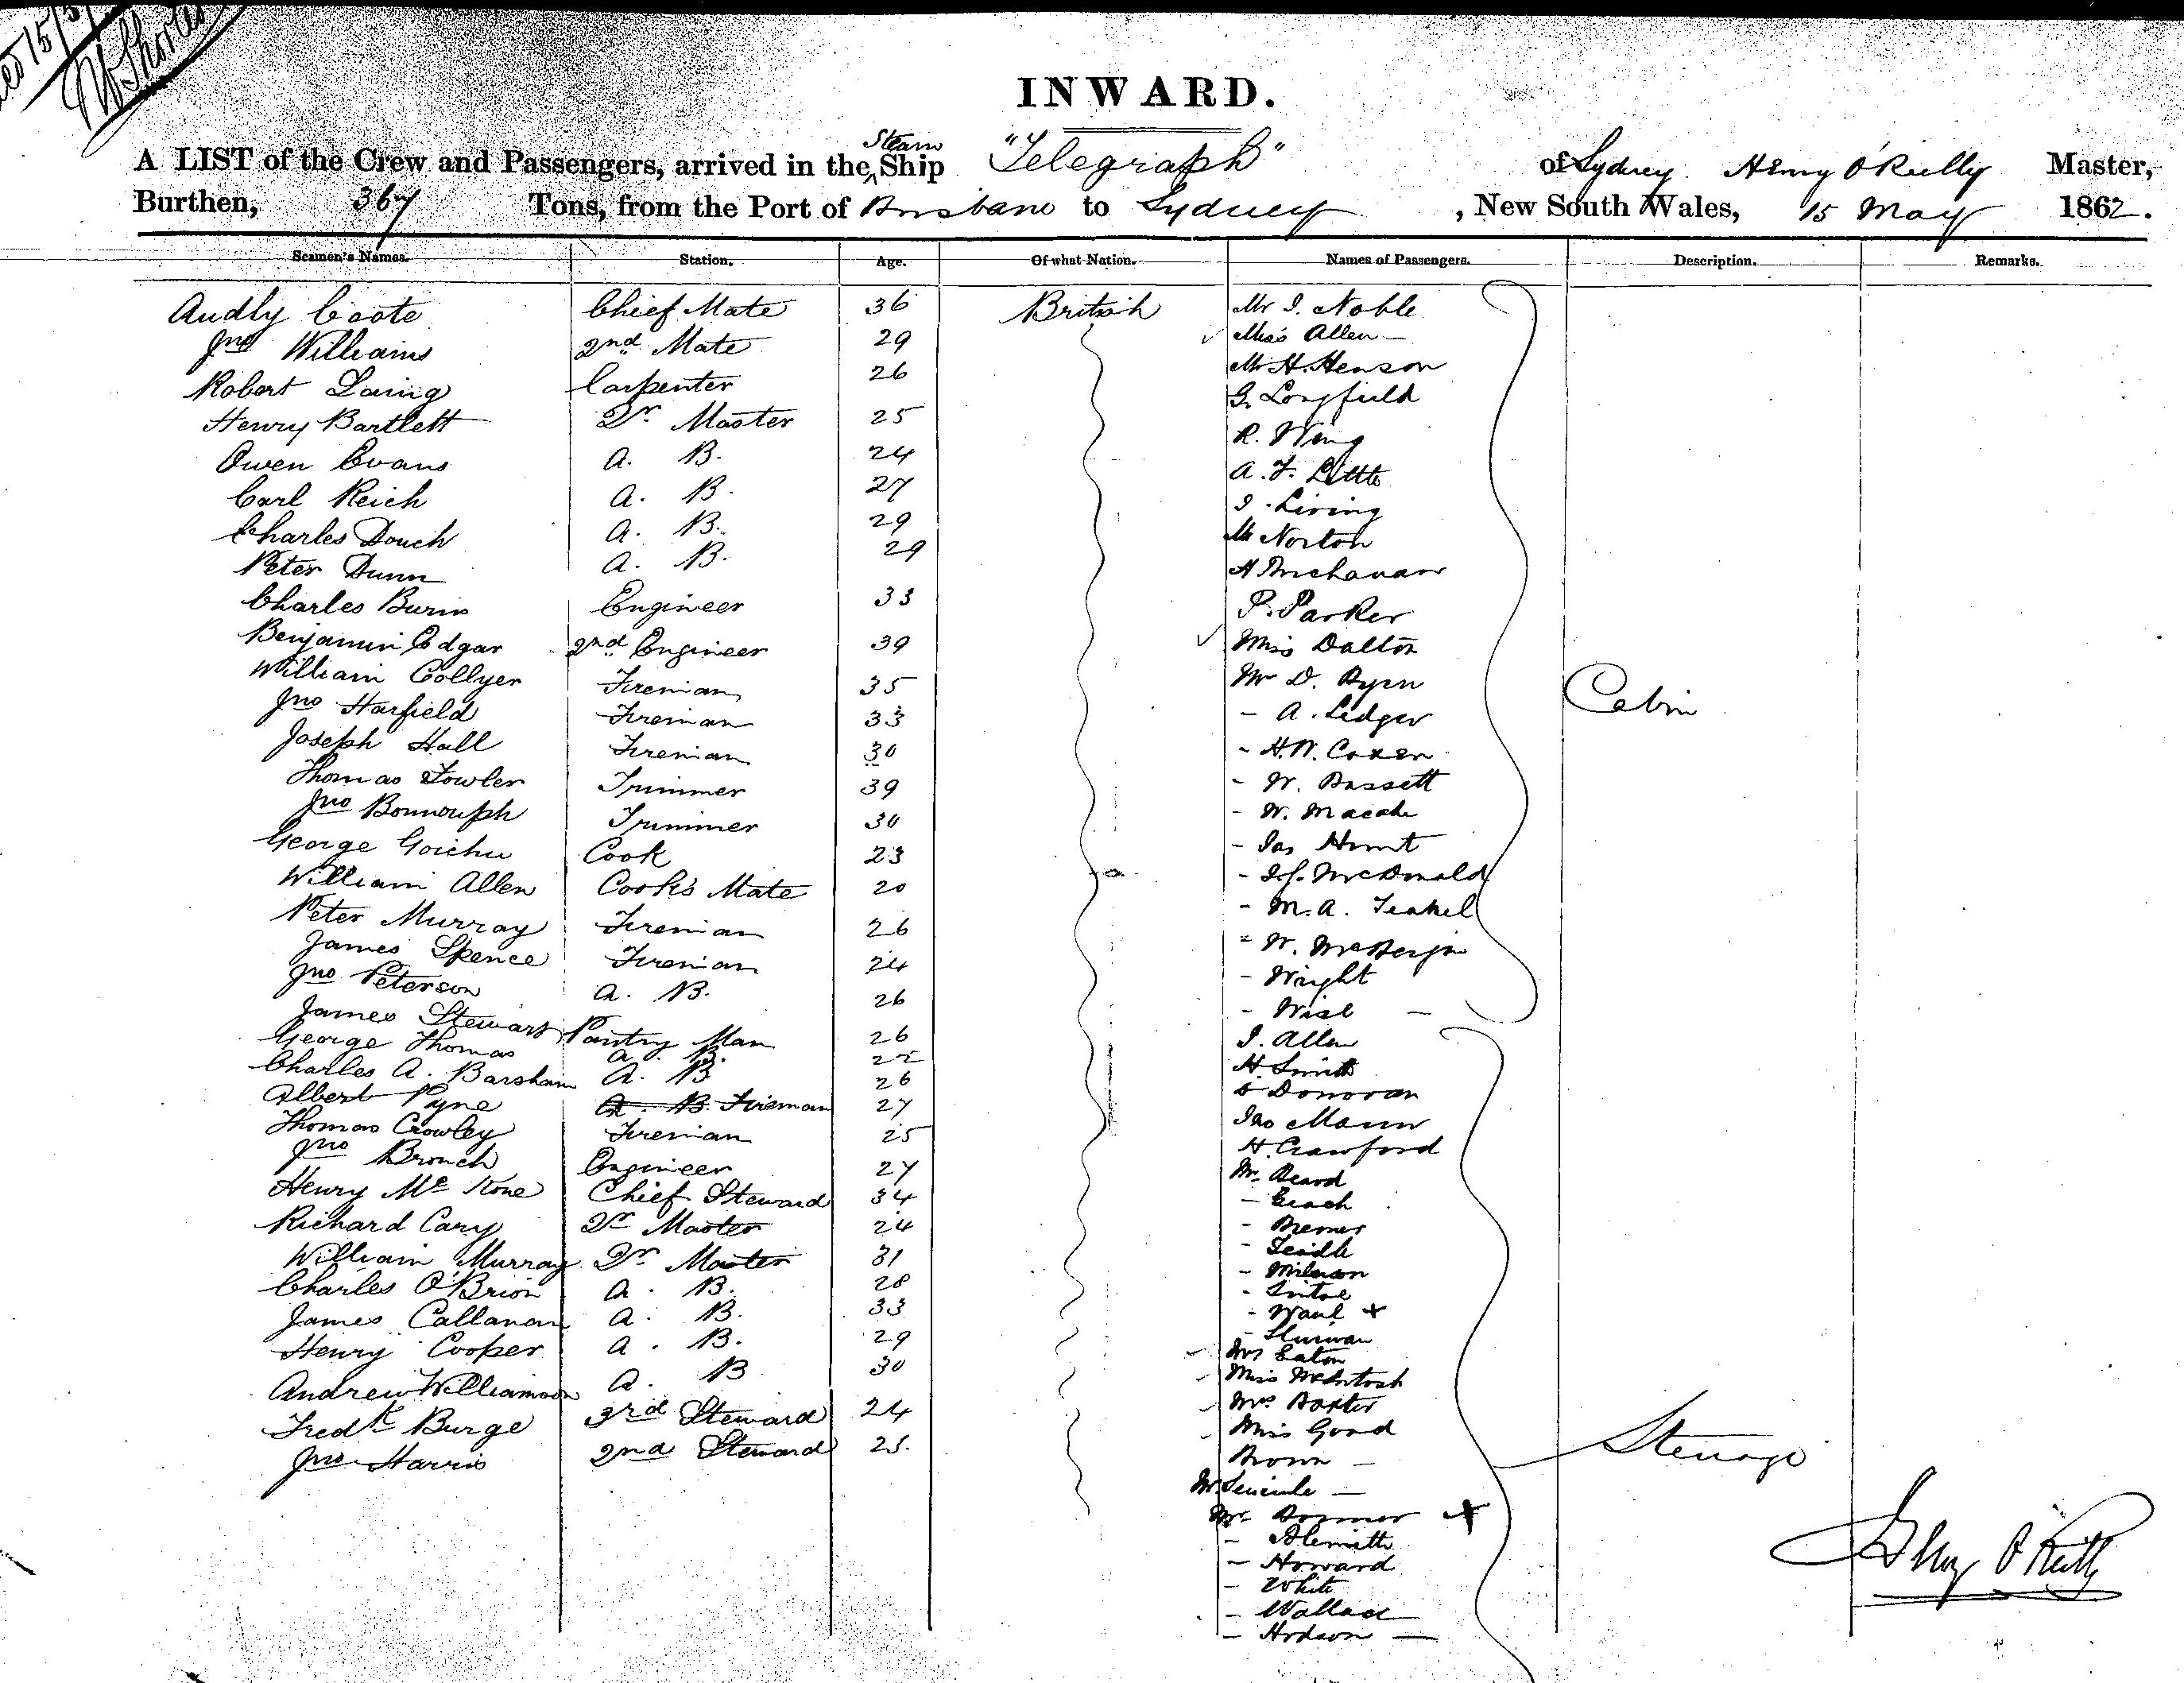 INWARD.
A LIST of the Crew and Passengers, arrived in the Steam Ship "Telegraph" of Sydney Henry O'Reilly Master,
Burthen, 367 Tons, from the Port of Brisbane to Sydney, New South Wales, 15 May 1862.
Seamen's Names. Station. Age. Of what Nation. Names of Passengers. Description. Remarks.
Audly Coote Chief Mate 36 British Mr J. Noble
Jno Williams 2nd Mate 29 Miss Allen
Robert Laing Carpenter 26 Mr H. Henson
Henry Bartlett Qr Master 25 G. Longfield
Owen Evans A. B. 24 R. Wing
Carl Reich A. B. 27 A. F. Little
Charles Douch A. B. 29 J. Living
Peter Dunn A. B. 29 Mr Norton
A Buchanan
Charles Burns Engineer 33 P. Parker
Benjamin Edgar 2nd Engineer 39 Miss Dalton
William Collyer Fireman 35 Mr D. Ryen Cabin
Jno Harfield Fireman 33 - A. Ledger
Joseph Hall Fireman 30 - H.W. Coxen
Thomas Fowler Trimmer 39 - W. Bassett
Jno Trimmer 30 - W.
George Cook 23 - Jas Hunt
William Allen Cook's Mate 20 - McDonald
Peter Murray Fireman 26 - M.A.
James Spence Fireman 24 - W.
Jno Peterson A. B. 26 - Wright
- Wise
James Stewart Pantry Man 26 J. Allen
George Thomas A. B. 22 H. Smith
Charles A. Barsham A. B 26 Donovan
Albert Pyne A. B. Fireman 27 Jas Mann
Thomas Crowley Fireman 25 H. Crawford
Jno Bronch Engineer 27 Mr Beard
Henry Mc Kone Chief Steward 34 -
Richard Cary Qr Master 24 - Bremer
William Murray Qr Master 31 -
Charles O'Brion A. B. 28 -
James Callanan A. B. 33 -
Henry Cooper A. B. 29 -
Mrs Eaton
Andrew Williamson A. B 30 Miss McIntosh
Fredk Burge 3rd Steward 24 Mrs Baxter
Miss Good
Jno Harris 2nd Steward 25. Brown Steerage
Mr
Mr
-
- Howard
- White
- Wallace
- Hodson
Henry O'Reilly